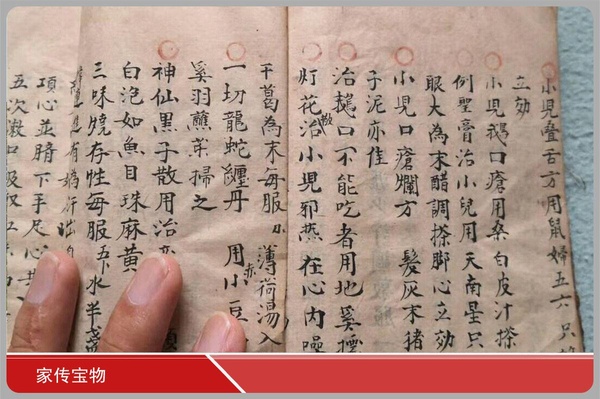 小児疊舌方用鼠婦五六只
立効
小児鵝口瘡用桑白皮汁搽
例聖膏治小兒用天南星只
眼大為末醋調搽脚心立効
小児口瘡爛方 髮灰末猪
子泥亦佳
治鵝口不能吃者用地雞擂
灯花散治小児邪熱在心内噪
干葛為末每服 薄荷湯入
一切龍蛇纏丹 用小豆
雞羽蘸茶掃之
神仙黒子散用治
白泡如魚目珠麻黄
三味燒存性每服五下水半盞
項心並暗下手足心
五次漱口
家传宝物